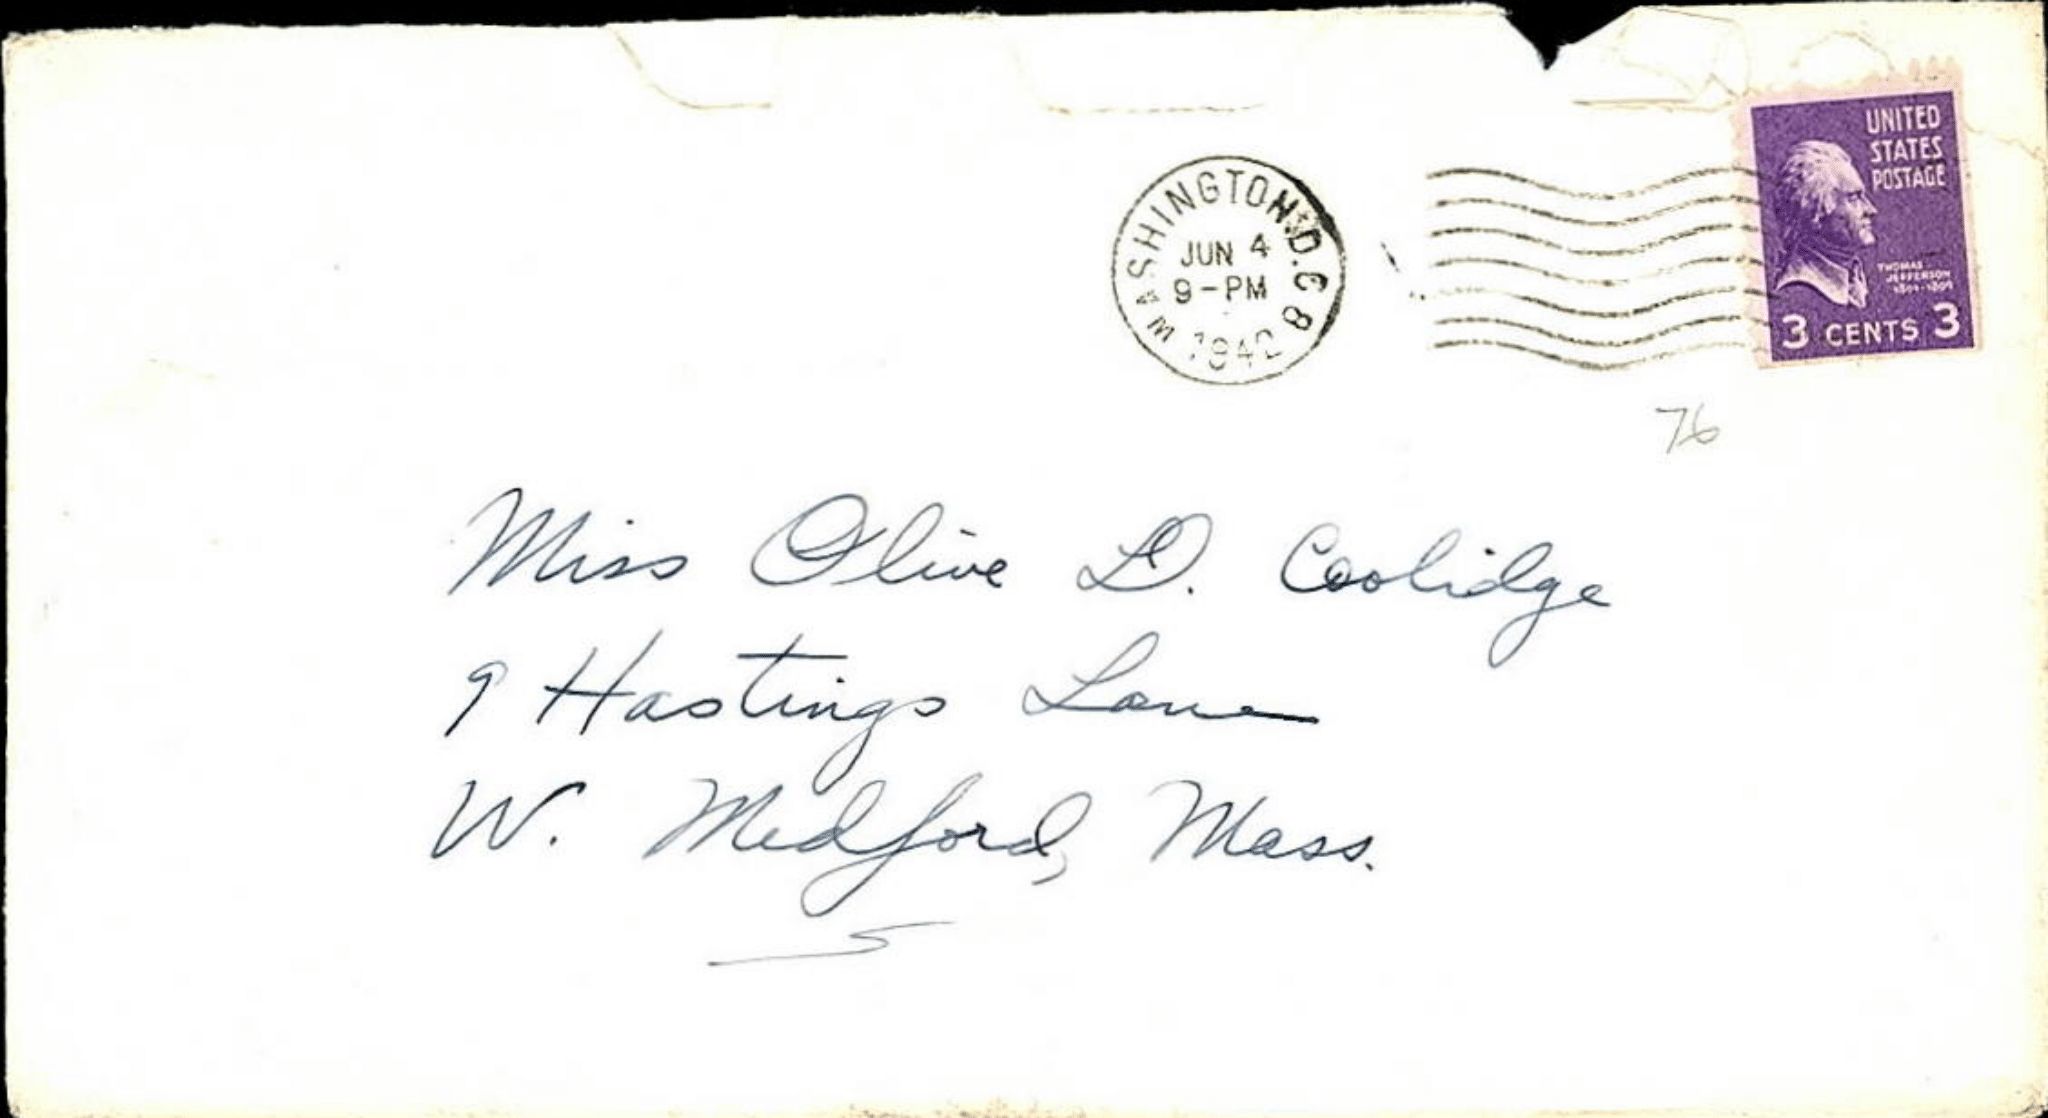 WASHINGTON, D.C. 8
JUN 4
9-PM
1942
UNITED
STATES
POSTAGE
THOMAS
JEFFERSON
1801-1809
3 CENTS 3
76
Miss Olive D. Coolidge
9 Hastings Lane
W. Medford, Mass.